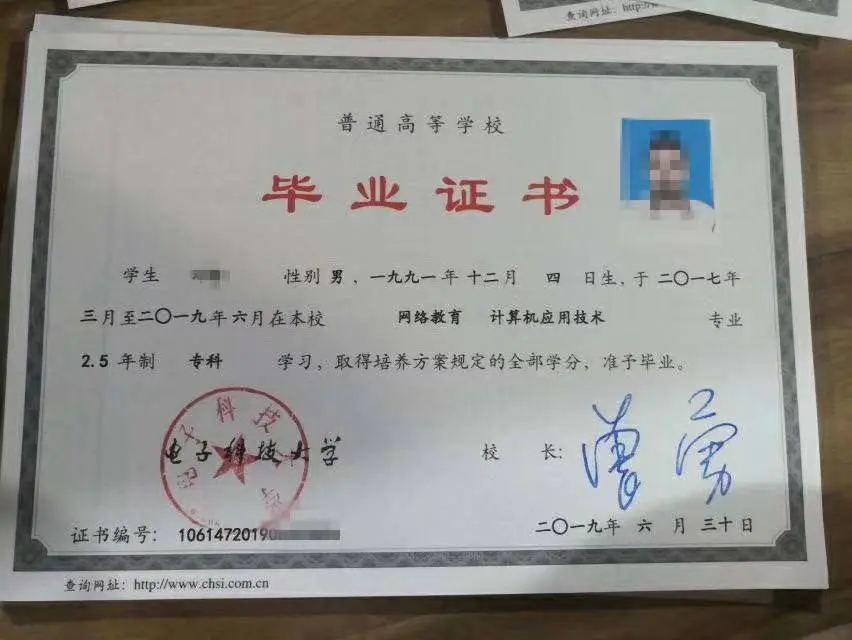 查询网址：http://www
普通高等学校
毕业证书
学生 性别 男，一九九一年 十二月 四 日生，于 二〇一七年
三月至二〇一九年 六月在本校 网络教育 计算机应用技术 专业
2.5 年制 专科 学习，取得培养方案规定的全部学分，准予毕业。
电子科技大学
校 长：
证书编号： 1061472019
二〇一九年 六 月 三十日
查询网址：http://www.chsi.com.cn